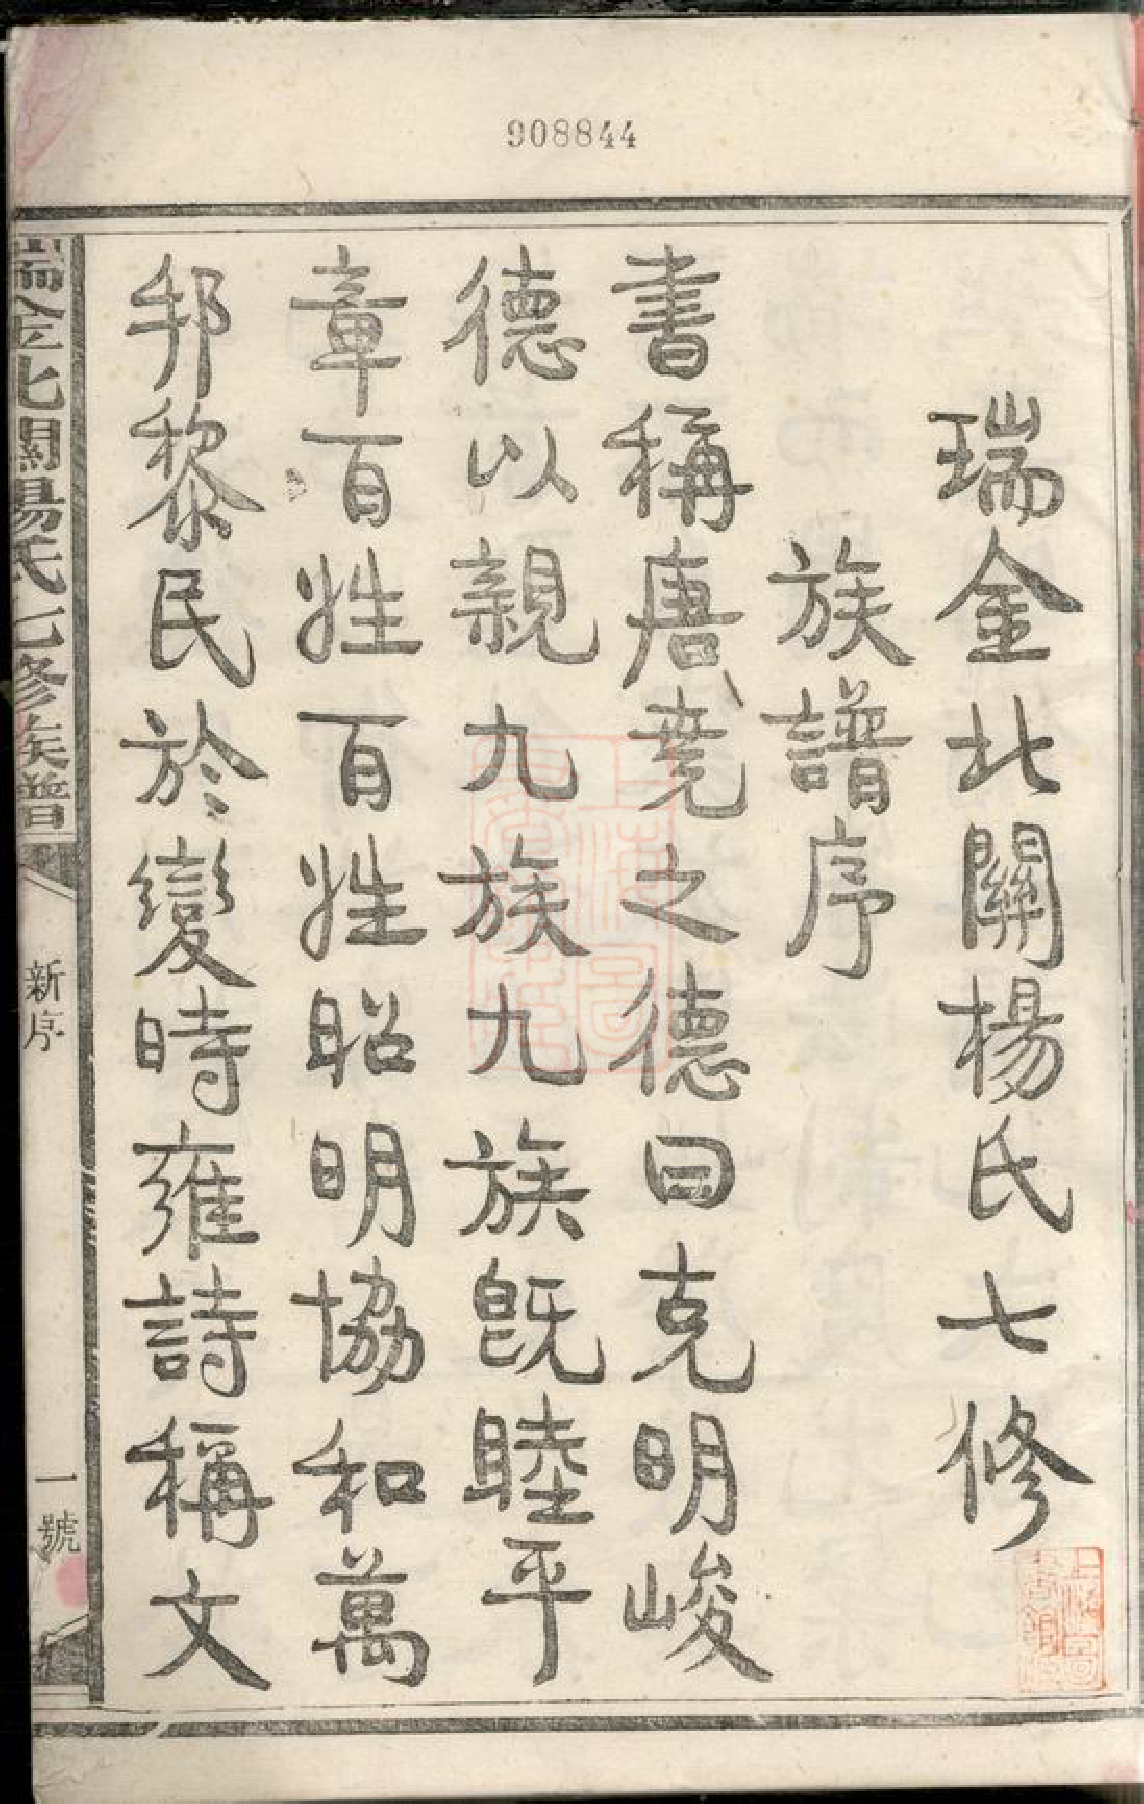 908844
瑞金北關楊氏七修
族譜序
書稱唐堯之德曰克明峻
德以親九族九族既睦平
章百姓百姓昭明協和萬
邦黎民於變時雍詩稱文
瑞金北關楊氏七修族譜
新序
一號
上海圖書館藏